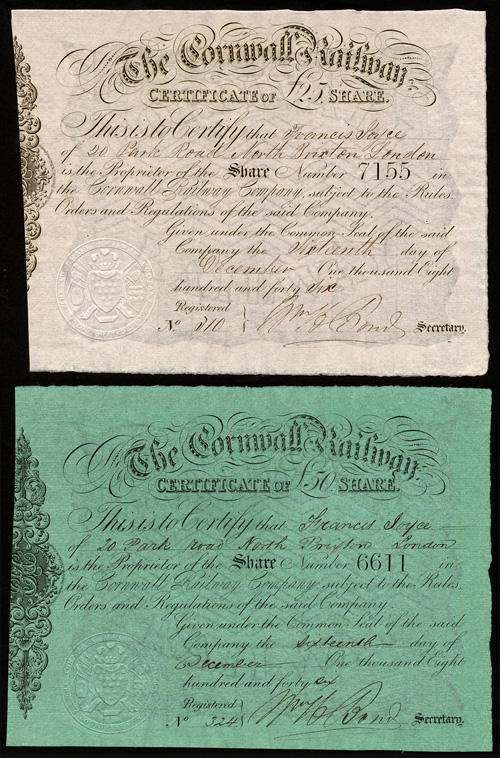 The Cornwall Railway.
CERTIFICATE OF £25 SHARE.
This is to Certify that Francis Joyce
of 20 Park Road North Brixton London
is the Proprietor of the Share Number 7155 in
the Cornwall Railway Company, subject to the Rules,
Orders and Regulations of the said Company.
Given under the Common Seal of the said
Company the Sixteenth day of
December One thousand Eight
hundred and forty six
Registered
No. 310 Wm H Bond Secretary.
The Cornwall Railway.
CERTIFICATE OF £50 SHARE.
This is to Certify that Francis Joyce
of 20 Park road North Brixton London
is the Proprietor of the Share Number 6611 in
the Cornwall Railway Company subject to the Rules,
Orders and Regulations of the said Company.
Given under the Common Seal of the said
Company the Sixteenth day of
December One thousand Eight
hundred and forty six
Registered
No. 324 Wm H Bond Secretary.